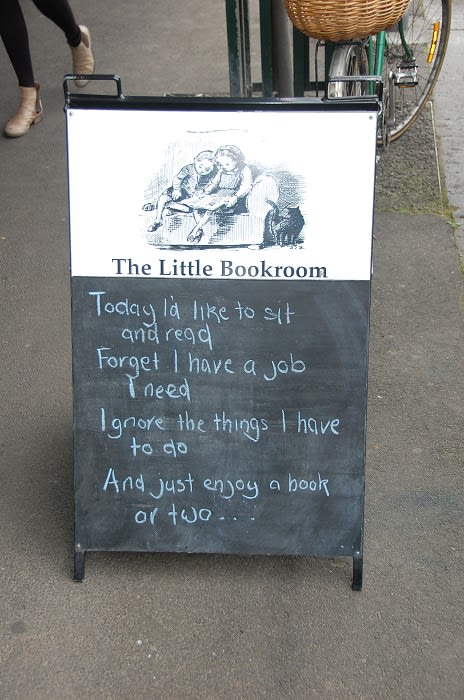 The Little Bookroom
Today I'd like to sit
and read
Forget I have a job
I need
Ignore the things I have
to do
And just enjoy a book
or two....